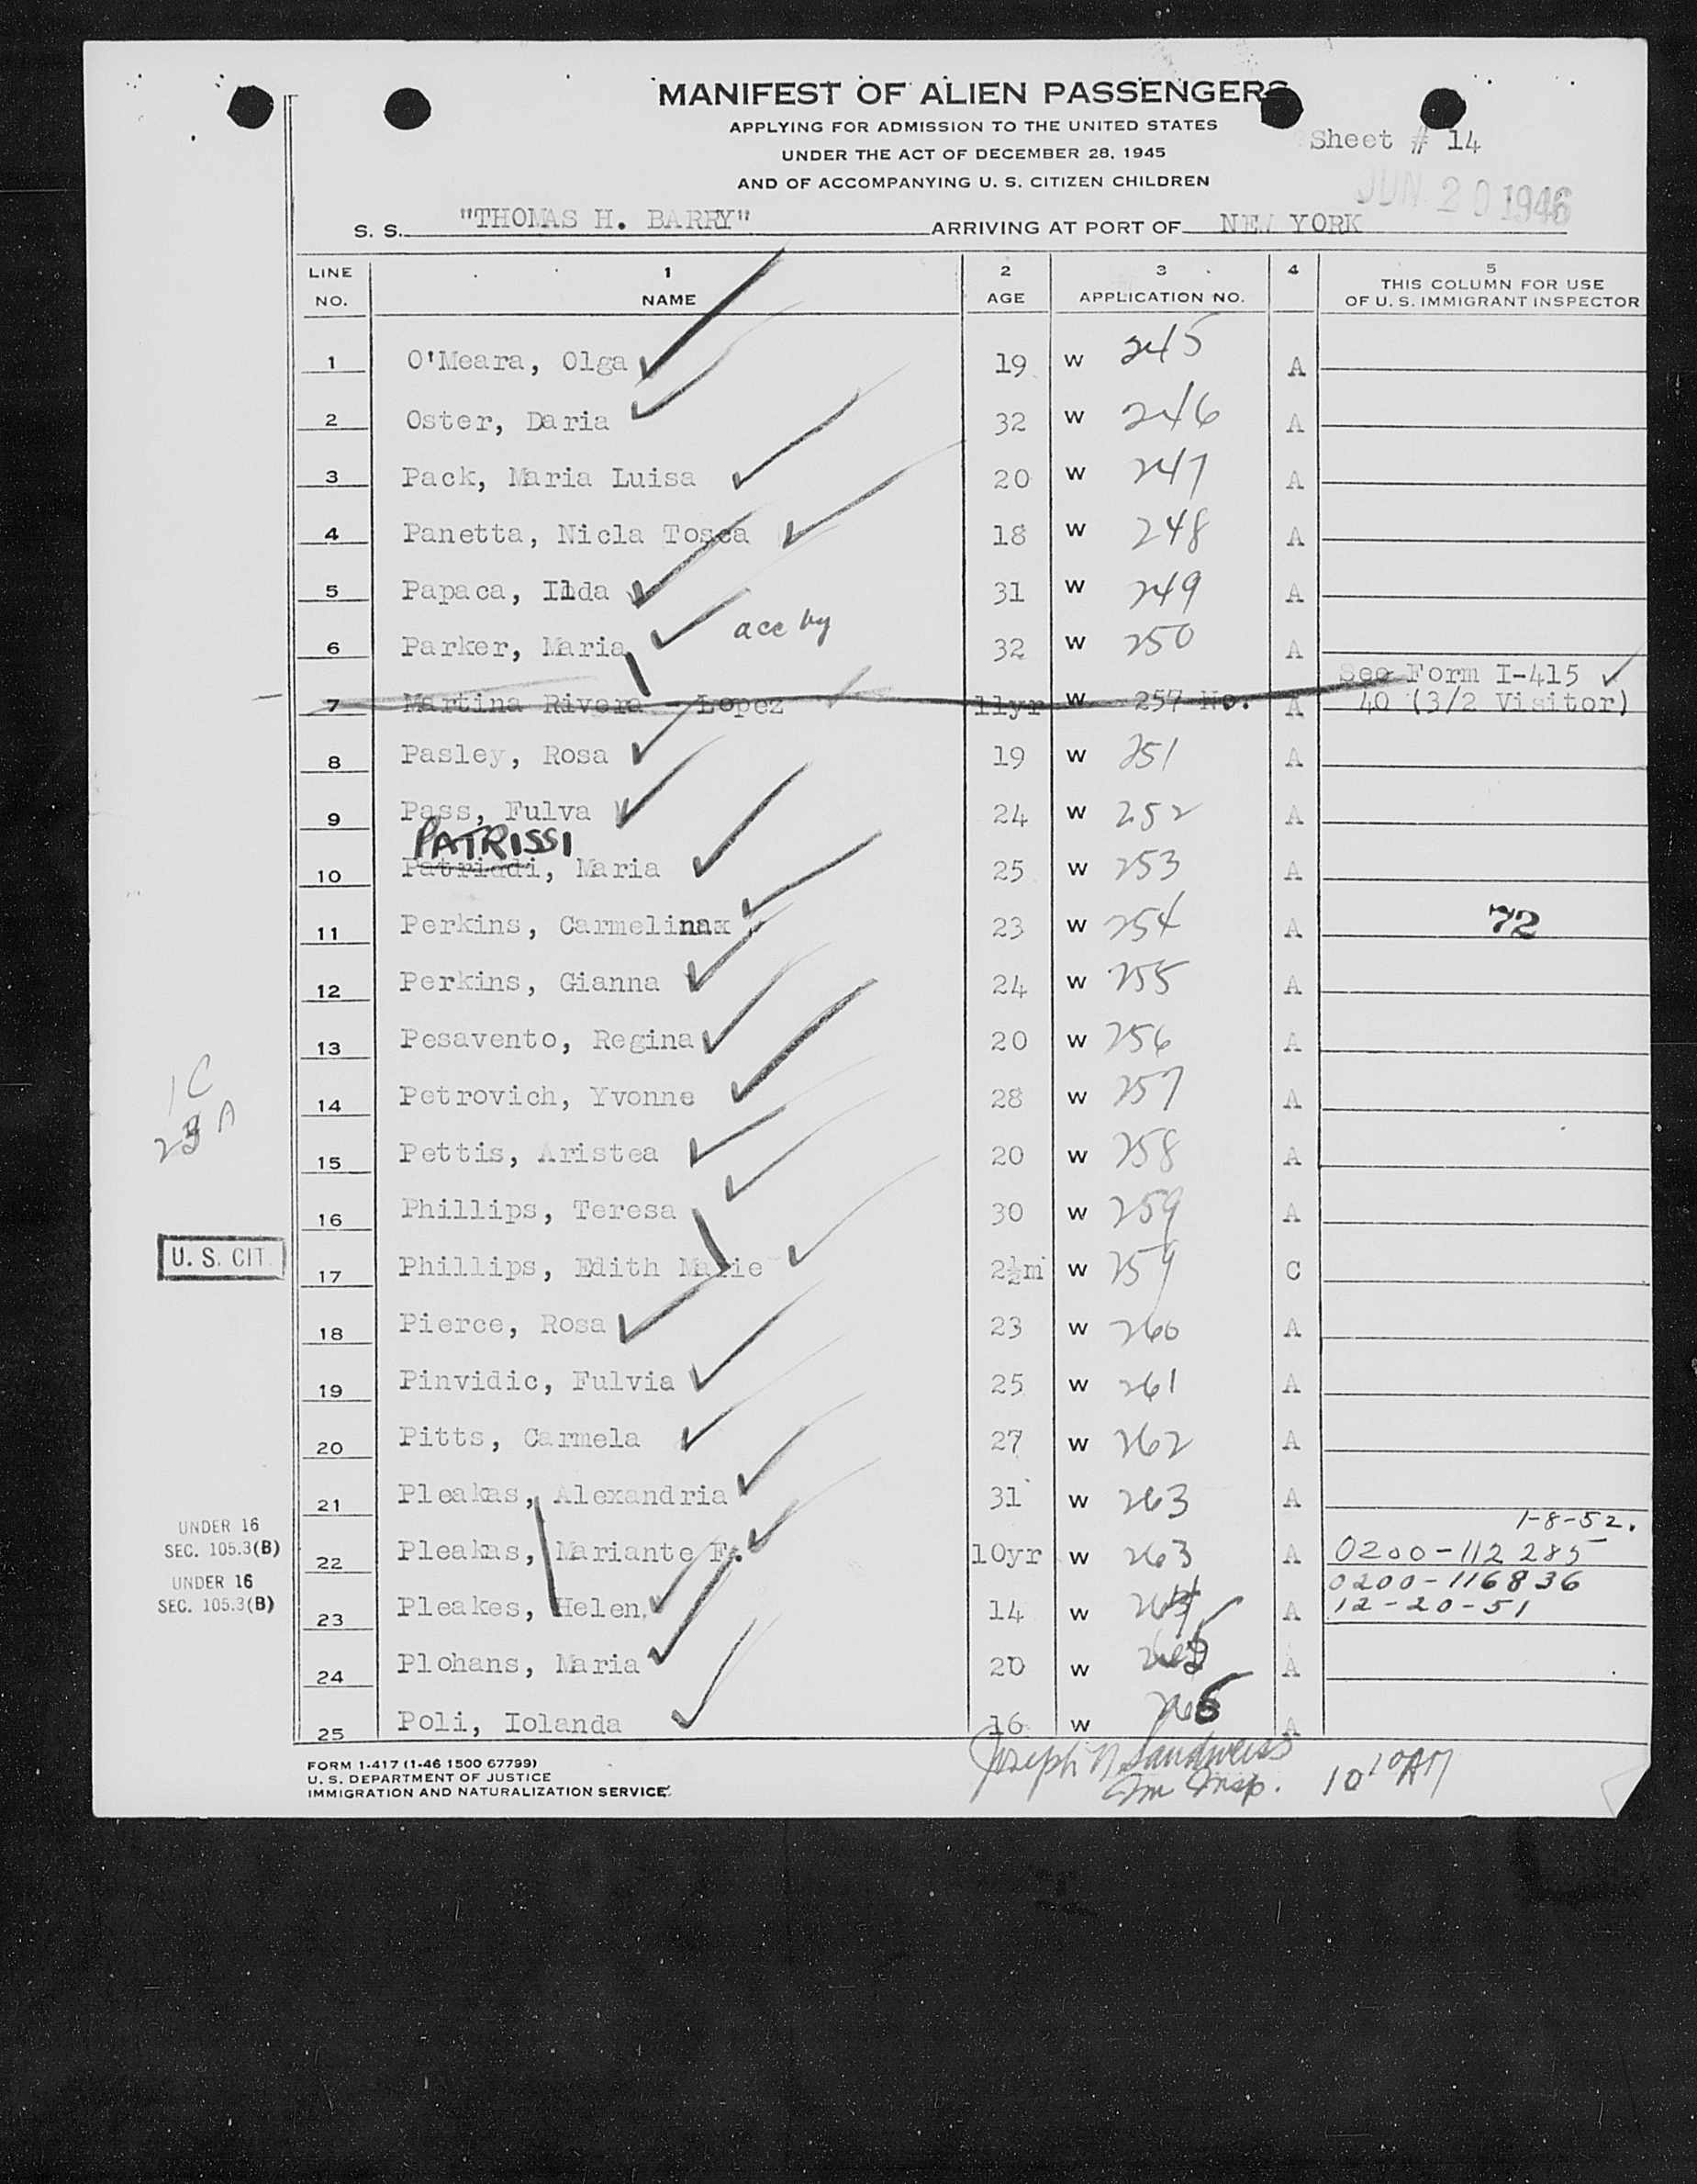 MANIFEST OF ALIEN PASSENGERS
APPLYING FOR ADMISSION TO THE UNITED STATES
UNDER THE ACT OF DECEMBER 28, 1945
AND OF ACCOMPANYING U. S. CITIZEN CHILDREN
Sheet # 14
JUN 20 1946
S. S. "THOMAS H. BARRY" ARRIVING AT PORT OF NEW YORK
LINE NO. 1 NAME 2 AGE 3 APPLICATION NO. 4 5 THIS COLUMN FOR USE OF U. S. IMMIGRANT INSPECTOR
1 O'Meara, Olga 19 W 245 A
2 Oster, Daria 32 W 246 A
3 Pack, Maria Luisa 20 W 247 A
4 Panetta, Nicla Tosca 18 W 248 A
5 Papaca, Ilda 31 W 249 A
6 Parker, Maria acc by 32 W 250 A
See Form I-415 ✓
7 Martina Rivera - Lopez 11yr W 257 No. A 40 (3/2 Visitor)
8 Pasley, Rosa 19 W 251 A
9 Pass, Fulva 24 W 252 A
PATRISSI
10 , Maria 25 W 253 A
11 Perkins, Carmelinax 23 W 254 A 72
12 Perkins, Gianna 24 W 255 A
13 Pesavento, Regina 20 W 256 A
14 Petrovich, Yvonne 28 W 257 A
1C
A
15 Pettis, Aristea 20 W 258 A
16 Phillips, Teresa 30 W 259 A
U. S. CIT.
17 Phillips, Edith Marie 2½m W 259 C
18 Pierce, Rosa 23 W 260 A
19 Pinvidic, Fulvia 25 W 261 A
20 Pitts, Carmela 27 W 262 A
21 Pleakas, Alexandria 31 W 263 A
1-8-52.
UNDER 16
SEC. 105.3(B)
22 Pleakas, Mariante F. 10yr W 263 A 0200-112 285
0200-116836
UNDER 16
SEC. 105.3(B)
23 Pleakes, Helen 14 W 264 A 12-20-51
24 Plohans, Maria 20 W 265 A
25 Poli, Iolanda 16 W 266 A
Joseph N Sandweiss
Im Insp. 10 10 AM
FORM I-417 (1-46 1500 67799)
U. S. DEPARTMENT OF JUSTICE
IMMIGRATION AND NATURALIZATION SERVICE